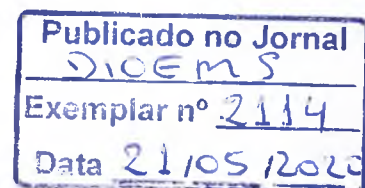 Publicado no Jornal
DIOEMS
Exemplar nº 2114
Data 21/05/2020